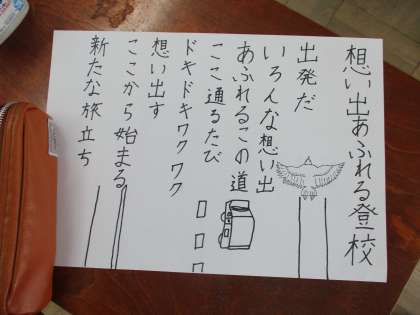 想い出あふれる登校
出発だ
いろんな想い出
あふれるこの道
ここ通るたび
ドキドキワクワク
想い出す
ここから始まる
新たな旅立ち